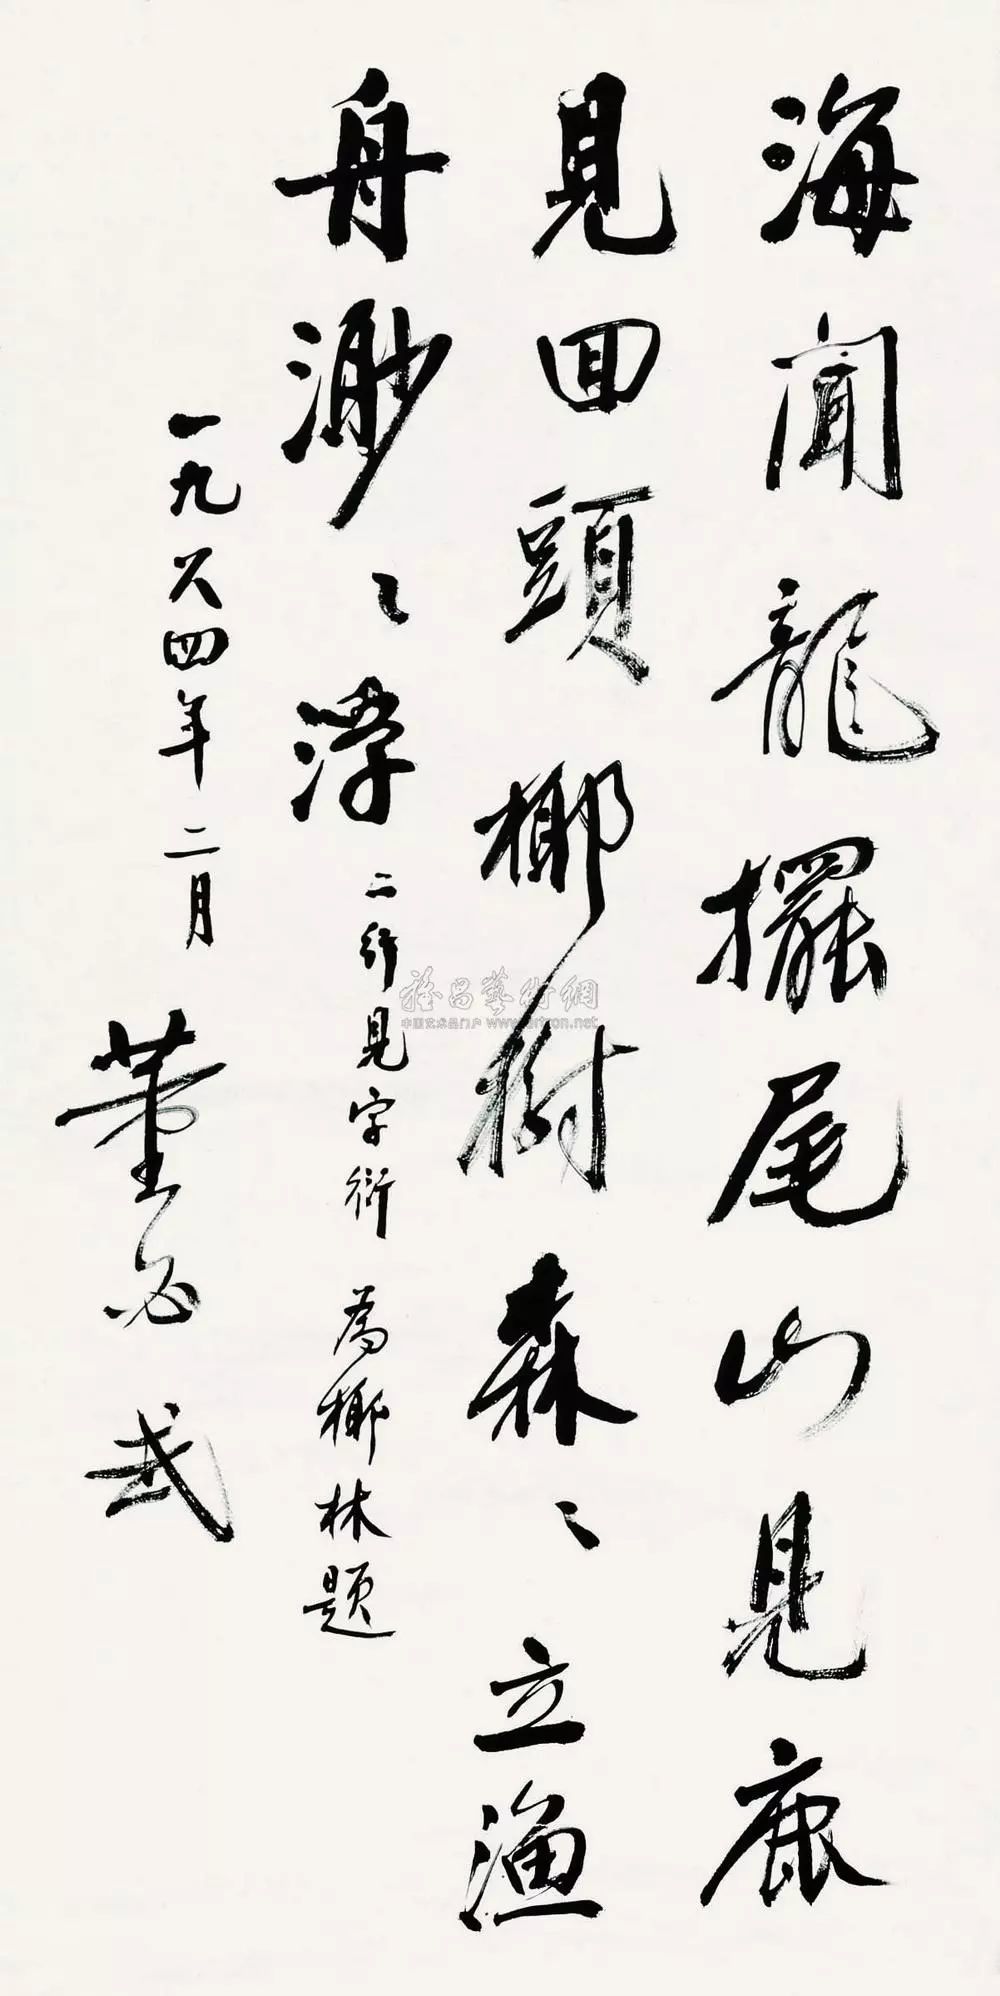 海闻龍擺尾山見鹿
見回頭椰樹森〻立漁
舟渺〻浮 二行見字衍 為椰林題
一九六四年二月 董必武
中国艺术品门户 www.artron.net